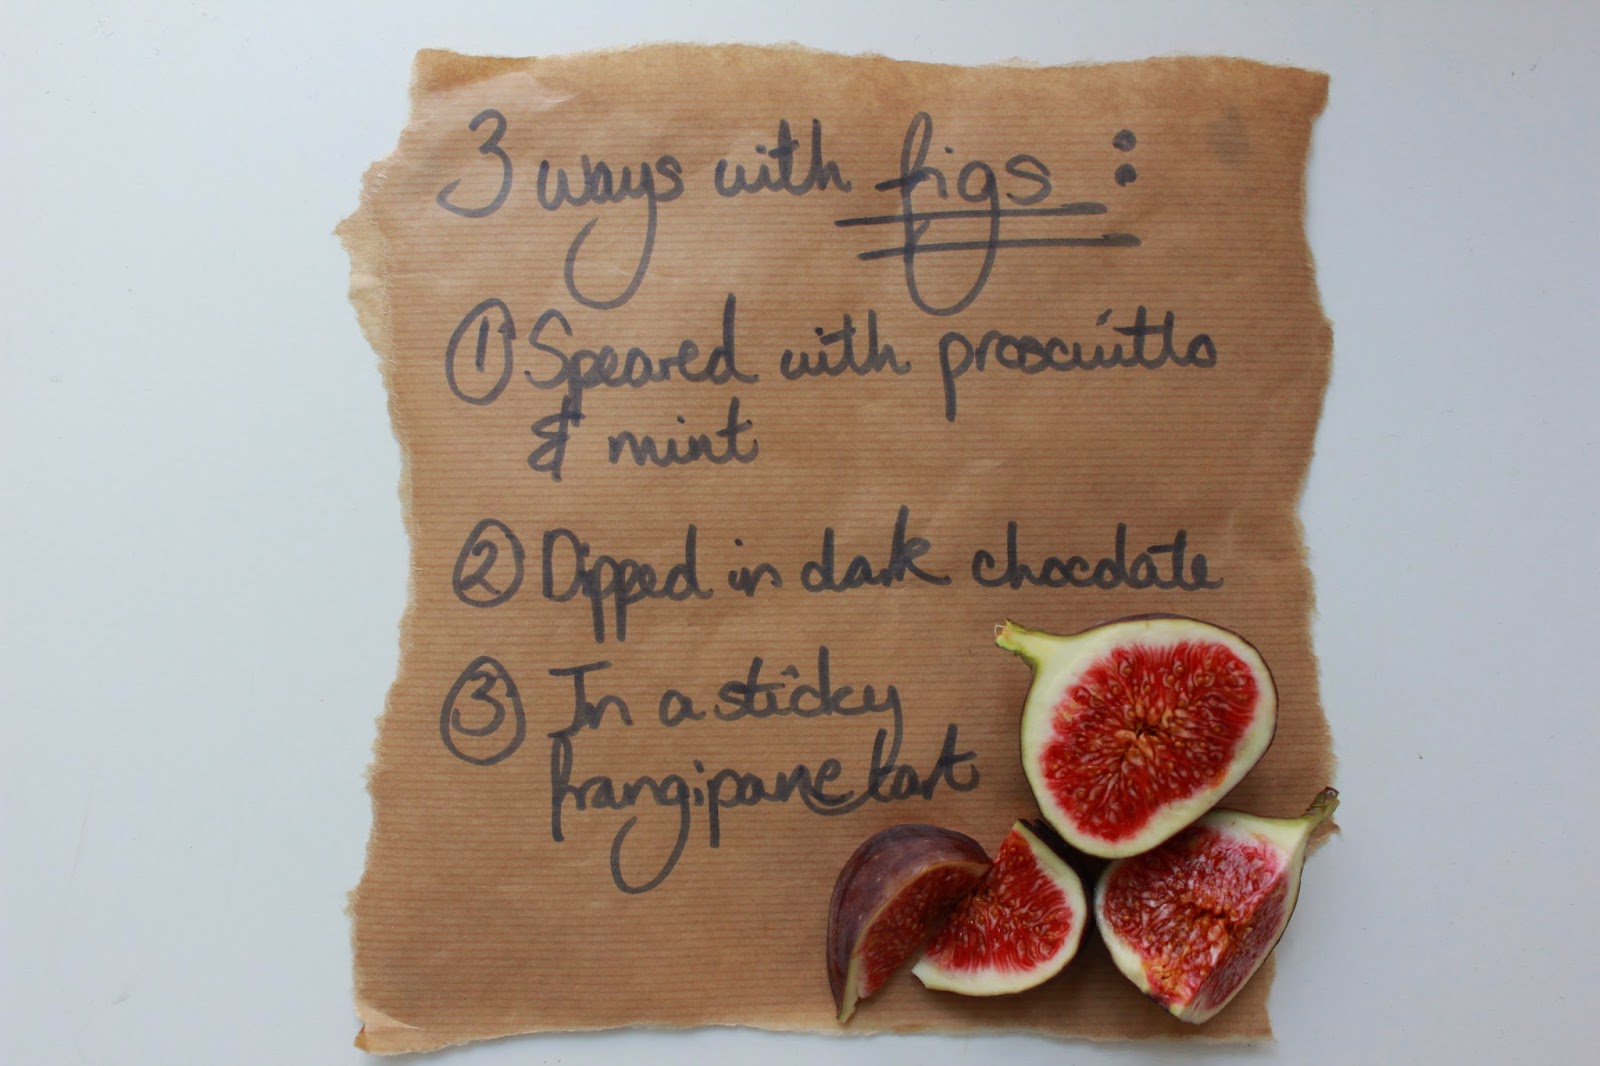 3 ways with figs :
① Speared with prosciutto
& mint
② Dipped in dark chocolate
③ In a sticky
frangipane tart